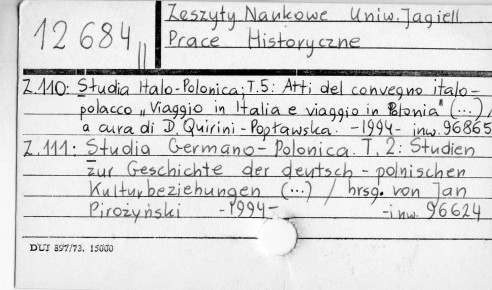 Zeszyty Naukowe Uniw. Jagiell
12 684 II
Prace Historyczne
Z.110: Studia Italo-Polonica: T.5: Atti del convegno italo-
polacco „Viaggio in Italia e viaggio in Polonia" (...) /
a cura di D. Quirini-Popławska. -1994- inw. 96865
Z.111: Studia Germano-Polonica. T. 2: Studien
zur Geschichte der deutsch-polnischen
Kulturbeziehungen (...) / hrsg. von Jan
Pirożyński -1994- -inw. 96624
DUJ 897/73. 15000